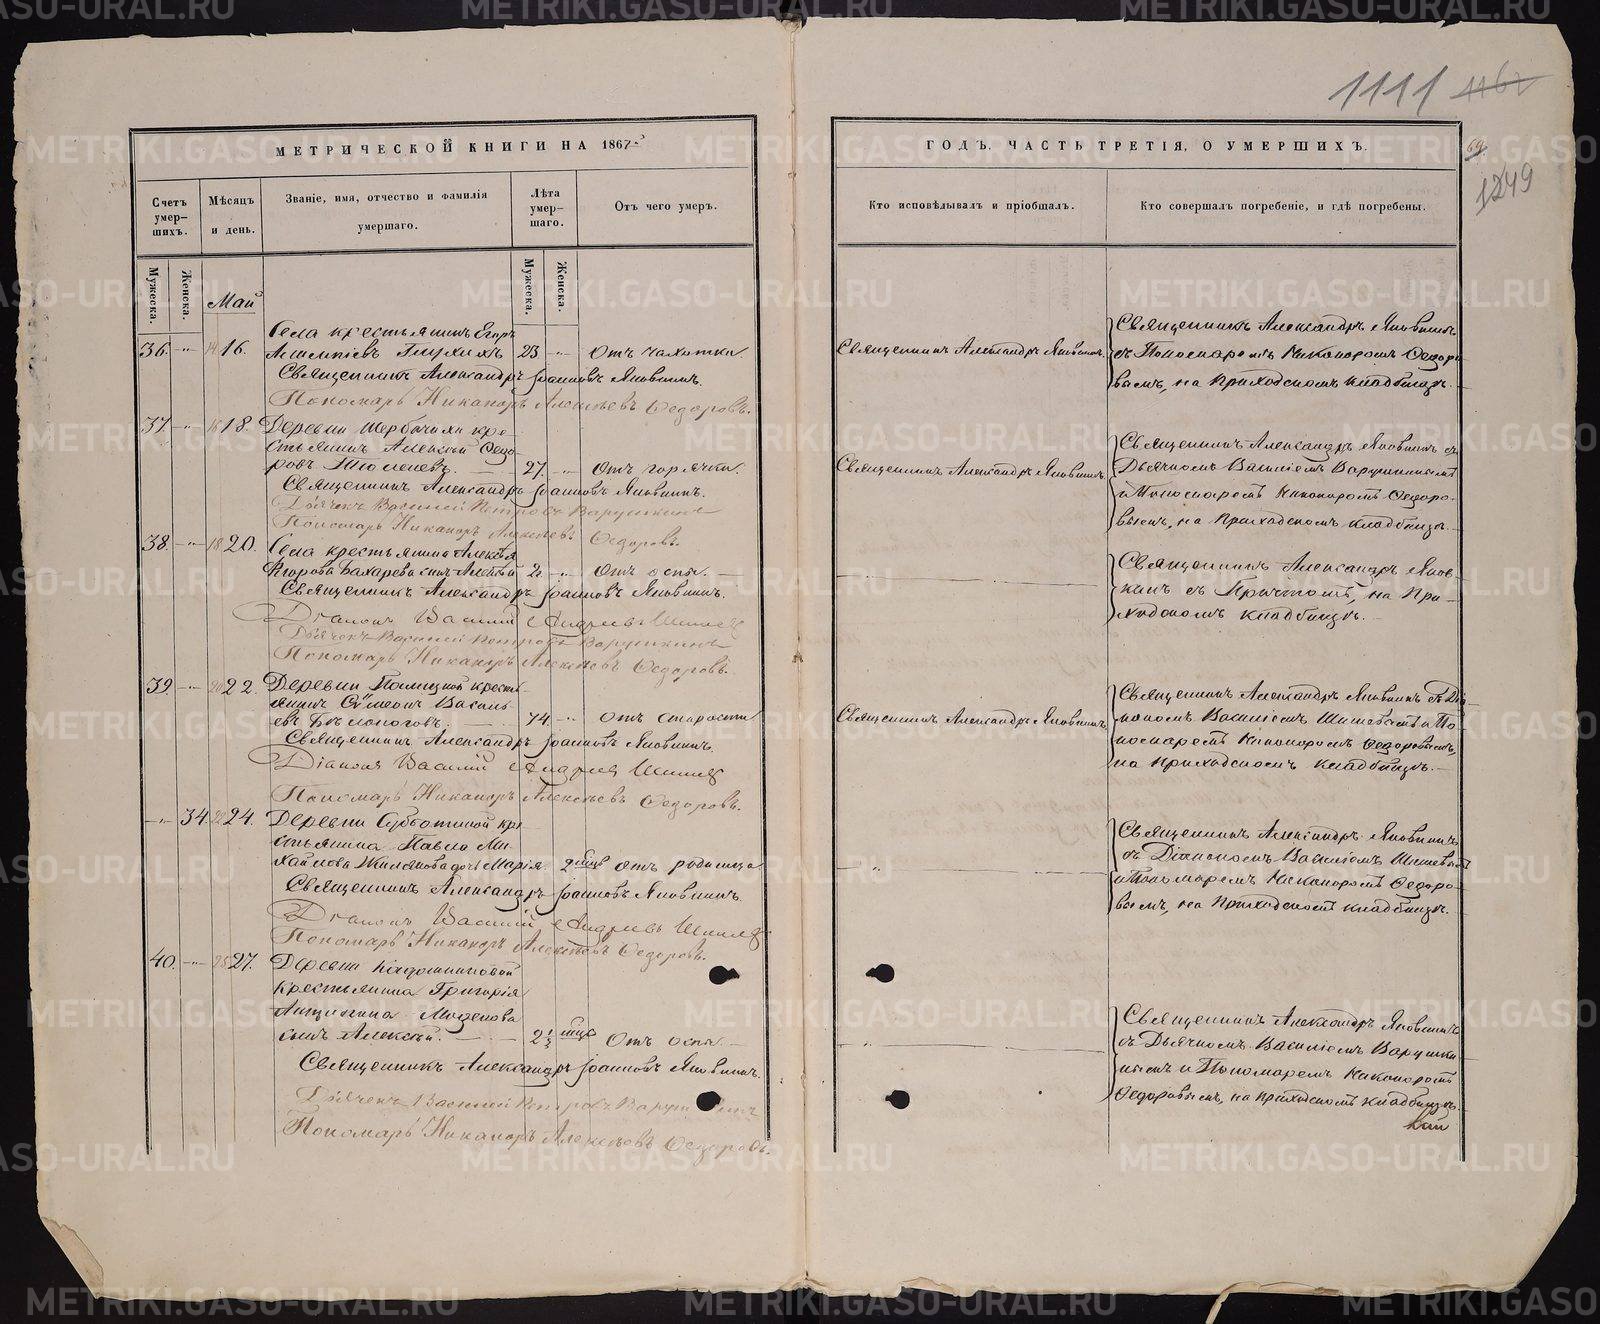 1111 1162
МЕТРИЧЕСКОЙ КНИГИ НА 1867
ГОДЪ, ЧАСТЬ ТРЕТІЯ, О УМЕРШИХЪ.
69.
1249
Счетъ умер-
шихъ.
Мѣсяцъ
и день.
Званіе, имя, отчество и фамилія
умершаго.
Лѣта
умер-
шаго.
Отъ чего умеръ.
Кто исповѣдывалъ и пріобщалъ.
Кто совершалъ погребеніе, и гдѣ погребены.
Мужеска.
Женска.
Май
Мужеска.
Женска.
Села крестьянинъ Егоръ
36. -"- 14 16. Глухихъ 23 -"- Отъ чахотки.
Священникъ Александръ Іоанновъ Яковкинъ.
Пономарь Никаноръ Алексѣевъ Ѳедоровъ.
Священникъ Александръ Яковкинъ.
Священникъ Александръ Яковкинъ
съ Пономаремъ Никаноромъ Ѳедоро-
вымъ, на Приходскомъ кладбищѣ.
37. -"- 16 18. Деревни Щербачихи кре-
стьянинъ Алексѣй Ѳедо-
ровъ Тюленевъ. 27. -"- Отъ горячки.
Священникъ Александръ Іоанновъ Яковкинъ.
Дьячекъ Василій Петровъ Варушкинъ
Пономарь Никаноръ Алексѣевъ Ѳедоровъ.
Священникъ Александръ Яковкинъ.
Священникъ Александръ Яковкинъ съ
Дьячкомъ Василіемъ Варушкинымъ
и Пономаремъ Никаноромъ Ѳедоро-
вымъ, на Приходскомъ кладбищѣ.
38. -"- 18 20. Села крестьянина Алексѣя
Егорова Бахарева сынъ Алексѣй 2. -"- Отъ оспы.
Священникъ Александръ Іоанновъ Яковкинъ.
Діаконъ Василій Андреевъ Шишевъ
Дьячекъ Василій Петровъ Варушкинъ
Пономарь Никаноръ Алексѣевъ Ѳедоровъ.
Священникъ Александръ Яков-
кинъ съ Причтомъ, на При-
ходскомъ кладбищѣ.
39. -"- 20 22. Деревни крестья-
янинъ Сѵмеонъ Василь-
евъ Бѣлоноговъ. 74 -"- Отъ старости
Священникъ Александръ Іоанновъ Яковкинъ.
Діаконъ Василій Андреевъ Шишевъ
Пономарь Никаноръ Алексѣевъ Ѳедоровъ.
Священникъ Александръ Яковкинъ.
Священникъ Александръ Яковкинъ съ Діа-
кономъ Василіемъ Шишевымъ и По-
номаремъ Никаноромъ Ѳедоровымъ,
на Приходскомъ кладбищѣ.
-"- 34. 22 24. Деревни Субботиной кре-
стьянина Павла Ми-
хайлова дочь Марія. 2 мѣс. Отъ родимца
Священникъ Александръ Іоанновъ Яковкинъ.
Діаконъ Василій Андреевъ Шишевъ
Пономарь Никаноръ Алексѣевъ Ѳедоровъ.
Священникъ Александръ Яковкинъ
съ Діакономъ Василіемъ Шишевымъ
и Пономаремъ Никаноромъ Ѳедоро-
вымъ, на Приходскомъ кладбищѣ.
40. -"- 25 27. Деревни
крестьянина Григорія
сынъ Алексѣй. 2½ мѣс. Отъ оспы.
Священникъ Александръ Іоанновъ Яковкинъ.
Дьячекъ Василій Петровъ Варушкинъ
Пономарь Никаноръ Алексѣевъ Ѳедоровъ.
Священникъ Александръ Яковкинъ
съ Дьячкомъ Василіемъ Варушки-
нымъ и Пономаремъ Никаноромъ
Ѳедоровымъ, на Приходскомъ кладбищѣ.
METRIKI.GASO-URAL.RU